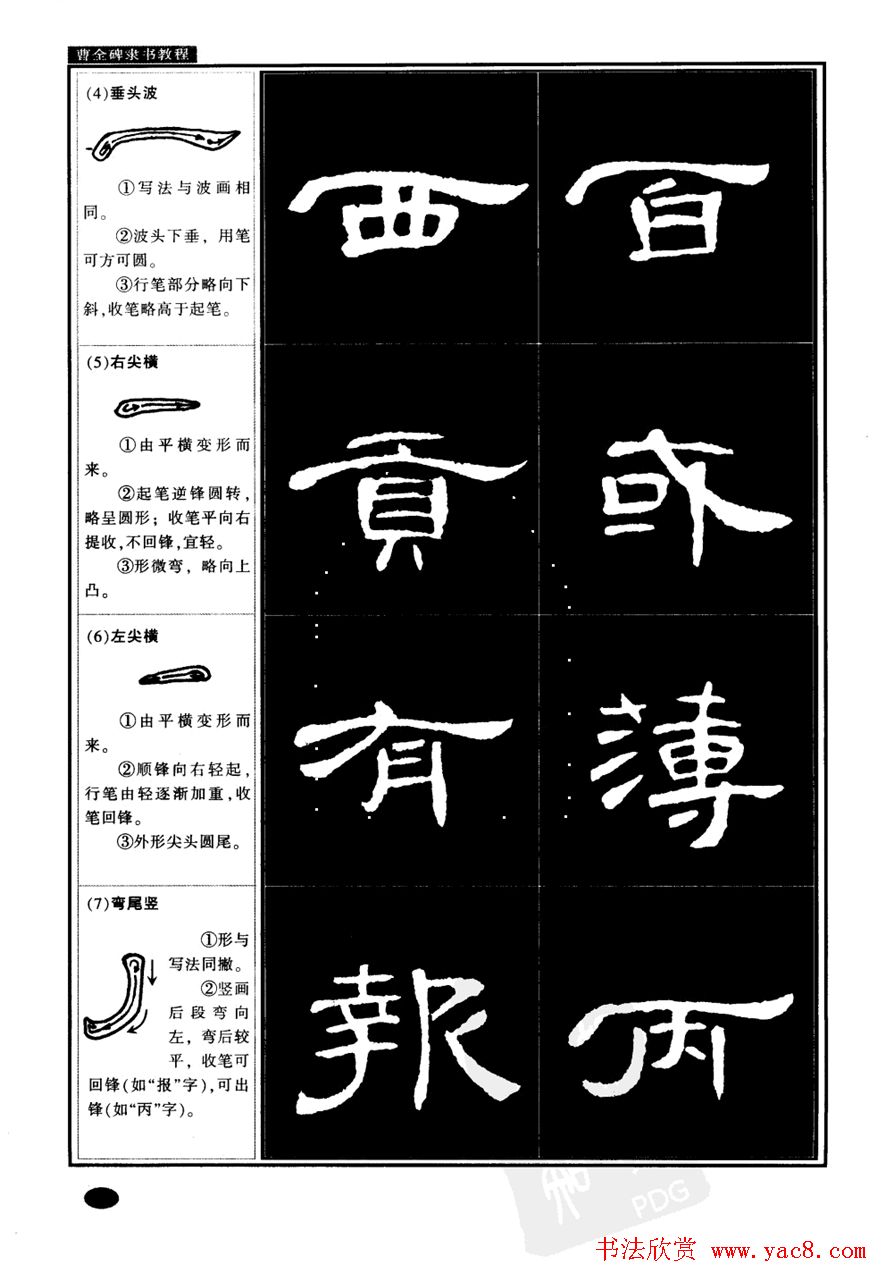 曹全碑隶书教程
(4)垂头波
①写法与波画相
同。
②波头下垂，用笔
可方可圆。
③行笔部分略向下
斜,收笔略高于起笔。
西百
(5)右尖横
①由平横变形而
来。
②起笔逆锋圆转，
略呈圆形；收笔平向右
提收,不回锋,宜轻。
③形微弯，略向上
凸。
貢或
(6)左尖横
①由平横变形而
来。
②顺锋向右轻起，
行笔由轻逐渐加重,收
笔回锋。
③外形尖头圆尾。
有薄
(7)弯尾竖
①形与
写法同撇。
②竖画
后段弯向
左，弯后较
平，收笔可
回锋(如“报”字),可出
锋(如“丙”字)。
報丙
PDG
书法欣赏 www.yac8.com